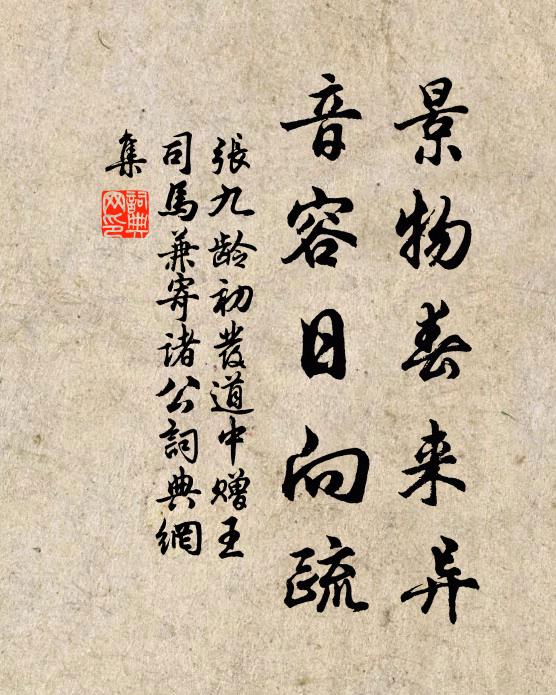 景物春来异
音容日向疏
張九龄初發道中赠王
司馬兼寄诸公詞典網
集
詞典
网印